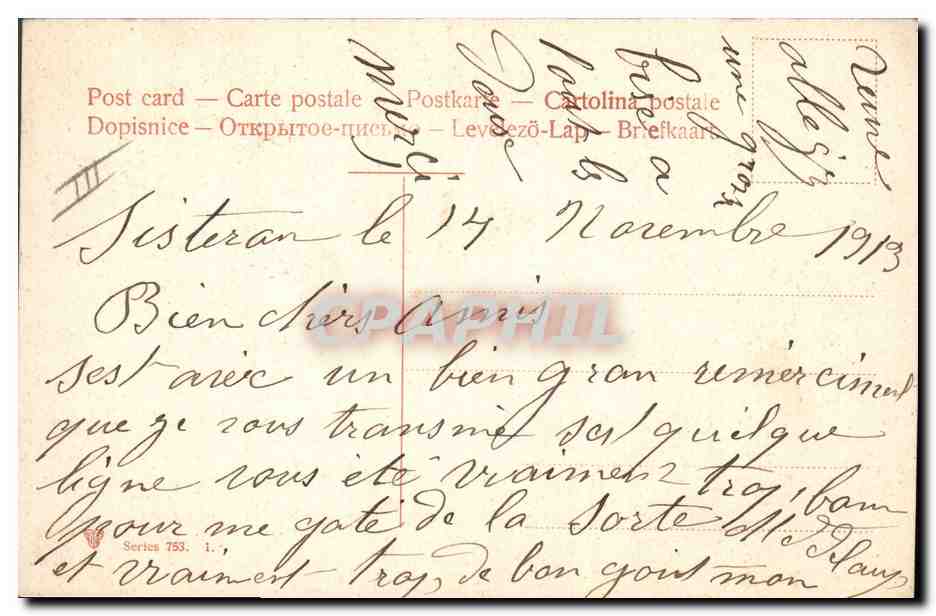 Post card — Carte postale — Postkarte — Cartolina postale
Dopisnice — Открытое-письмо — Levelező-Lap — Briefkaart
III
Sisteran le 14 Novembre 1913
Bien chers amis
sest avec un bien gran remerciment
que ze vous transmé set quelque
ligne vous été vraiment trop, bam
pour me gate de la sorte Mr
et vraiment trop, de bon gout mon
une gross
bise a
tout ls
Merçi
Series 753. 1.
CPAPHIL